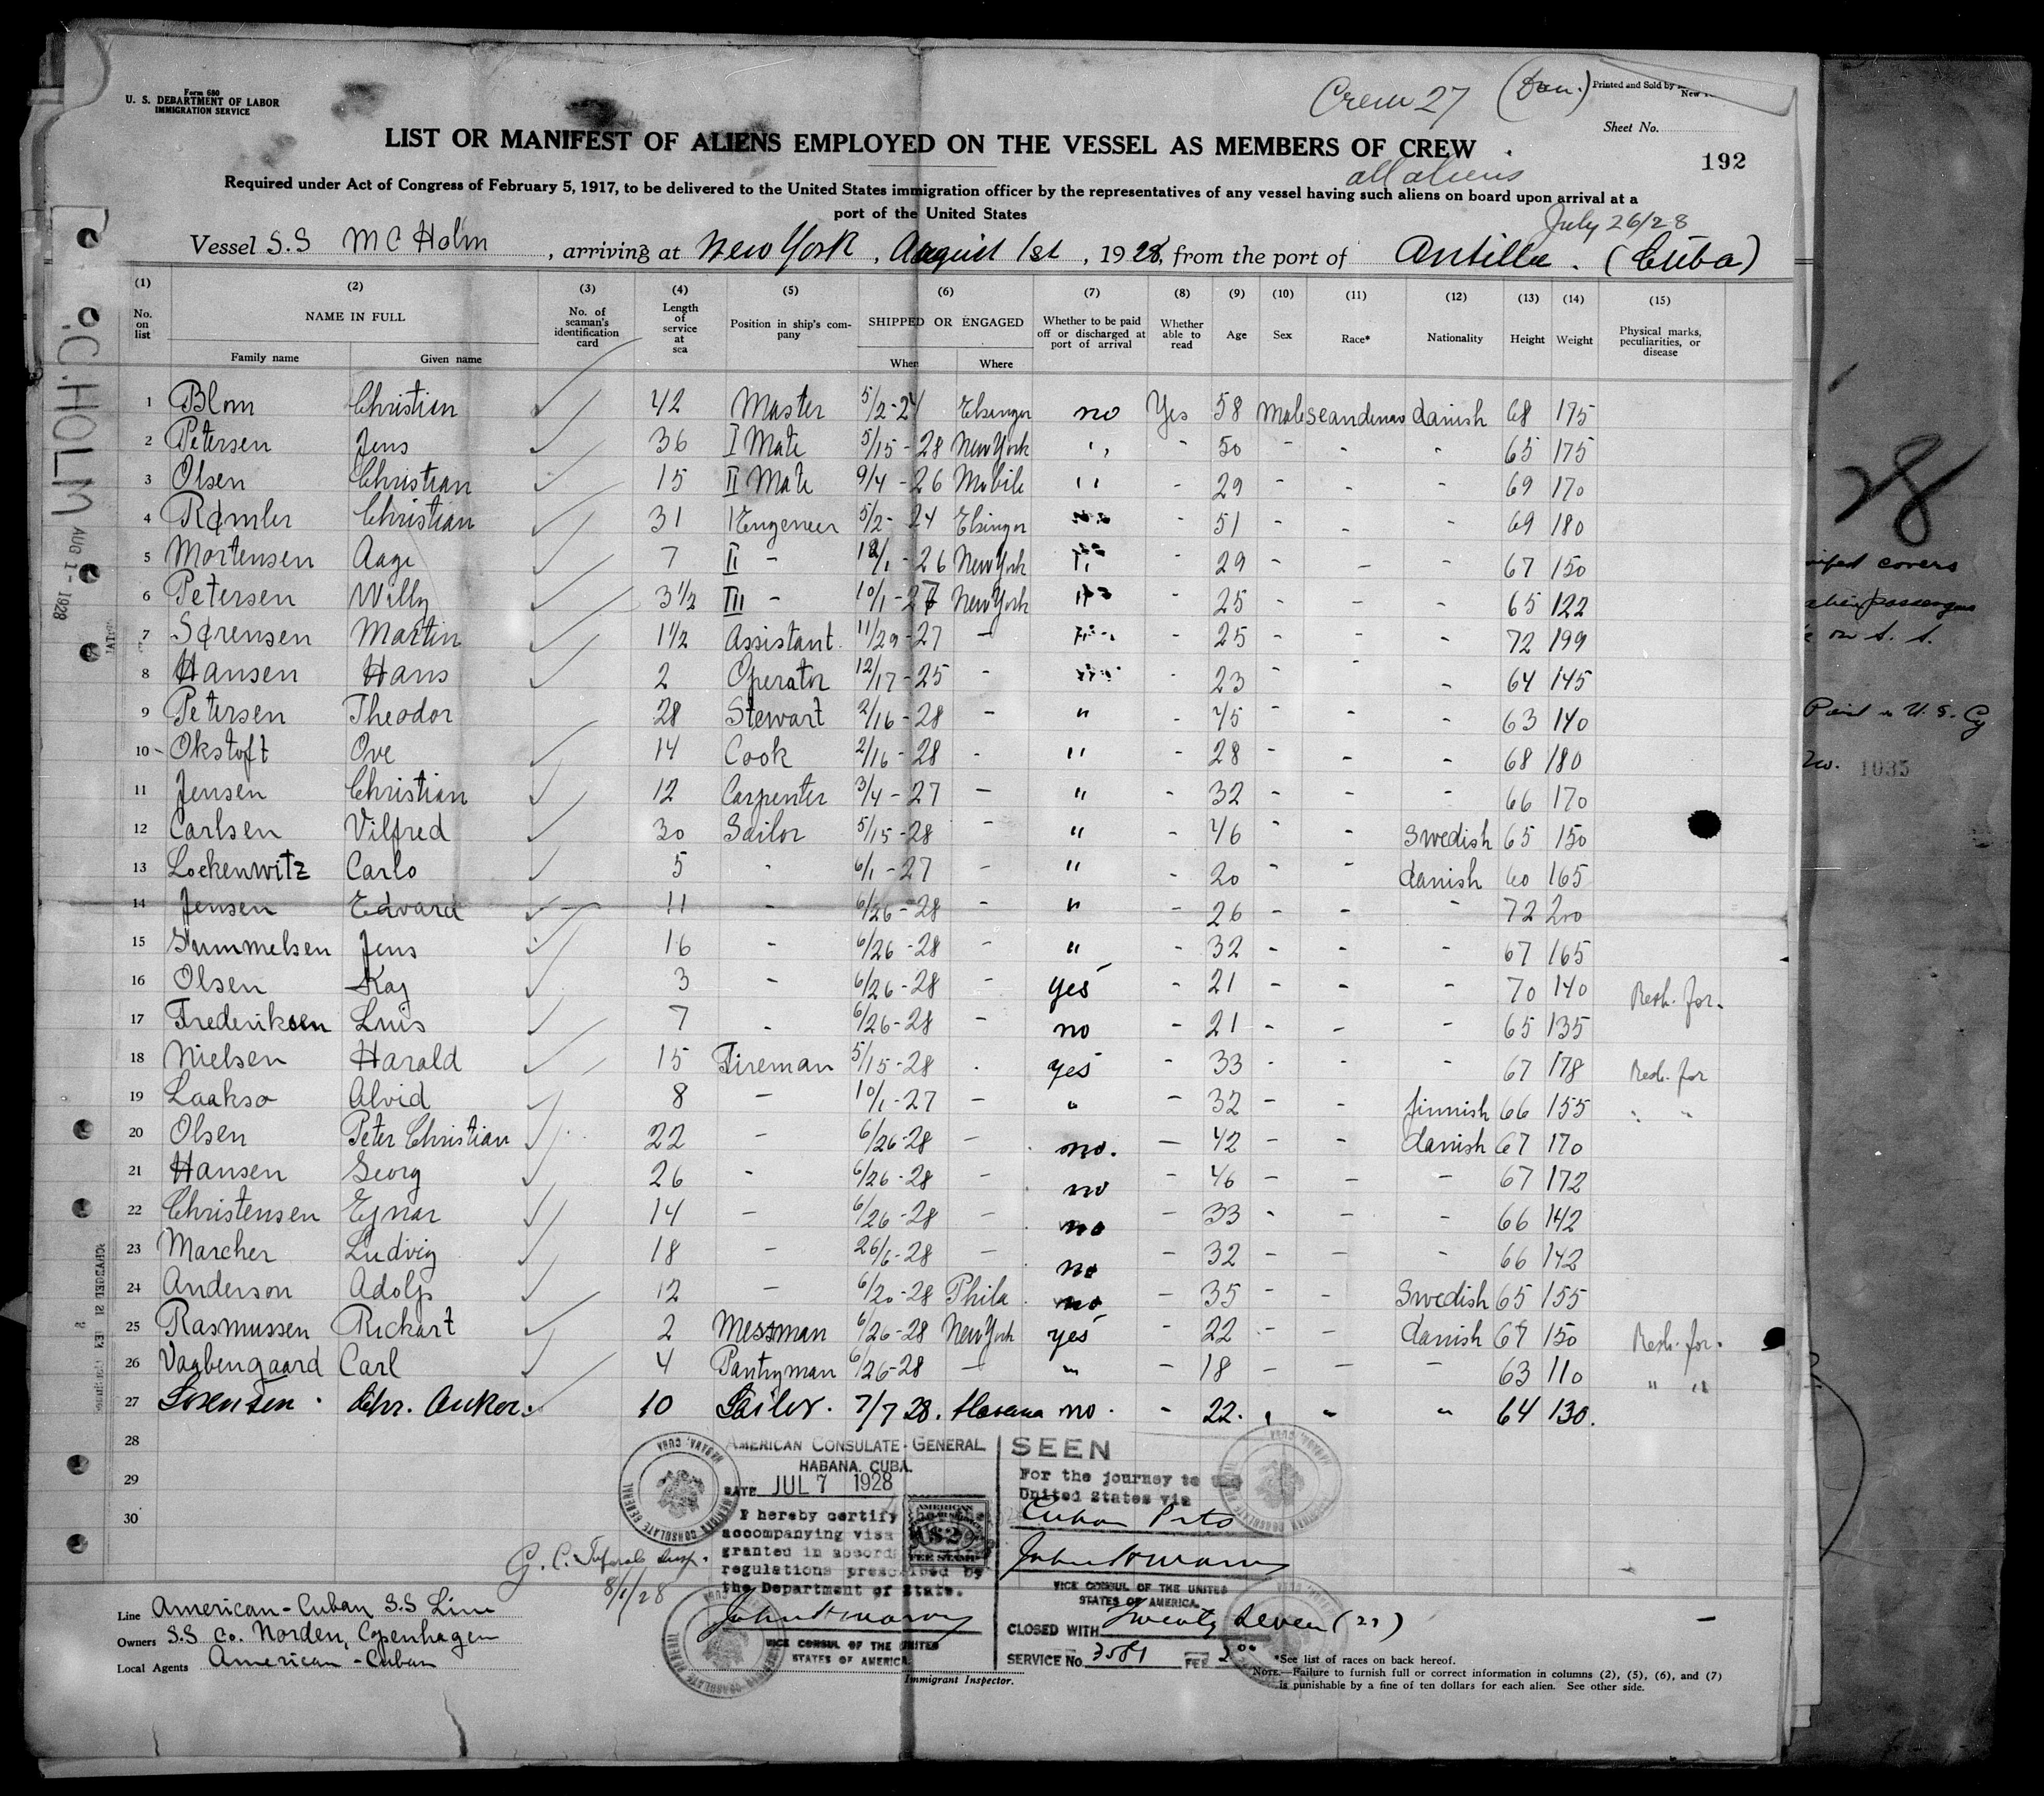 Form 680
U. S. DEPARTMENT OF LABOR
IMMIGRATION SERVICE
Crew 27 (Dan.)
Printed and Sold by
New
Sheet No.
LIST OR MANIFEST OF ALIENS EMPLOYED ON THE VESSEL AS MEMBERS OF CREW
192
all aliens
Required under Act of Congress of February 5, 1917, to be delivered to the United States immigration officer by the representatives of any vessel having such aliens on board upon arrival at a
port of the United States
July 26/28
Vessel S.S MC Holm, arriving at New York, August 1st, 1928, from the port of Antilla. (Cuba)
(1) (2) (3) (4) (5) (6) (7) (8) (9) (10) (11) (12) (13) (14) (15)
No. on list
NAME IN FULL
Family name Given name
No. of seaman's identification card
Length of service at sea
Position in ship's company
SHIPPED OR ENGAGED
When Where
Whether to be paid off or discharged at port of arrival
Whether able to read
Age
Sex
Race*
Nationality
Height
Weight
Physical marks, peculiarities, or disease
1 Blom Christian 42 Master 5/2-24 Elsinger no Yes 58 Male Scandenav danish 68 175
2 Petersen Jens 36 I Mate 5/15-28 New York " - 50 - - - 65 175
3 Olsen Christian 15 II Mate 9/4-26 Mobile " - 29 - - - 69 170
4 Rømler Christian 31 I Engeneer 5/2-24 Elsinger - 51 - - - 69 180
5 Mortensen Aage 7 II - -26 New York - 29 - - - 67 150
6 Petersen Willy 3 1/2 III - 10/1-27 New York - 25 - - - 65 122
7 Sørensen Martin 1 1/2 Assistant 11/29-27 - - 25 - - - 72 199
8 Hansen Hans 2 Operator 12/17-25 - - 23 - - - 64 145
9 Petersen Theodor 28 Stewart 2/16-28 - " - 45 - - - 63 140
10 Okstoft Ove 14 Cook 2/16-28 - " - 28 - - - 68 180
11 Jensen Christian 12 Carpenter 3/4-27 - " - 32 - - - 66 170
12 Carlsen Vilfred 30 Sailor 5/15-28 - " - 46 - - Swedish 65 150
13 Lockenwitz Carlo 5 - 6/1-27 - " - 20 - - danish 60 165
14 Jensen Edvard 11 - 6/26-28 - " - 26 - - - 72 200
15 Gummelsen Jens 16 - 6/26-28 - " - 32 - - - 67 165
16 Olsen Kaj 3 - 6/26-28 - yes - 21 - - - 70 140 Resh. for.
17 Frederiksen Luis 7 - 6/26-28 - no - 21 - - - 65 135
18 Nielsen Harald 15 Fireman 5/15-28 - yes - 33 - - - 67 178 Resh. for
19 Laakso Alvid 8 - 10/1-27 - " - 32 - - finnish 66 155 " "
20 Olsen Peter Christian 22 - 6/26-28 - no. - 42 - - danish 67 170
21 Hansen Georg 26 - 6/26-28 - no - 46 - - - 67 172
22 Christensen Ejnar 14 - 6/26-28 - no - 33 - - - 66 142
23 Marcher Ludvig 18 - 26/6-28 - no - 32 - - - 66 142
24 Anderson Adolf 12 - 6/20-28 Phila no - 35 - - Swedish 65 155
25 Rasmussen Rickart 2 Messman 6/26-28 New York yes - 22 - - danish 67 150 Resh. for.
26 Vagbengaard Carl 4 Pantryman 6/26-28 - " - 18 - - - 63 110 " "
27 Sorensen Chr. Anker. 10 Sailor. 7/7 28. Havana no. - 22. " " " 64 130.
28
29
30
AMERICAN CONSULATE-GENERAL
HABANA, CUBA.
DATE JUL 7 1928
I hereby certify
accompanying visa
granted in accord
regulations prescribed by
the Department of State.
VICE CONSUL OF THE UNITED
STATES OF AMERICA
AMERICAN
FEE STAMP
SEEN
For the journey to the
United States via
Cuban Pots
VICE CONSUL OF THE UNITED
STATES OF AMERICA.
CLOSED WITH Twenty Seven (27)
SERVICE No. 3581 FEE 2.00
AMERICAN CONSULATE GENERAL HABANA, CUBA
8/1/28
Line American-Cuban S.S Line
Owners S.S Co. Norden, Copenhagen
Local Agents American-Cuban
Immigrant Inspector.
*See list of races on back hereof.
NOTE.—Failure to furnish full or correct information in columns (2), (5), (6), and (7)
is punishable by a fine of ten dollars for each alien. See other side.
C. HOLM
AUG 1 - 1928
28
covers
alien passengers
on S. S.
Paid in U. S. Cy
No. 1035